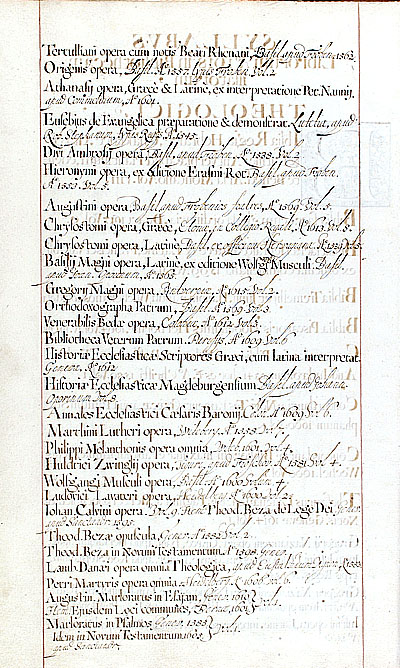 Tertulliani opera cum notis Beati Rhenani, Basil. apud Froben. 1562.
Origenis opera, Basil. Aº 1557. Vol. 2
Athanasij opera, Græcè & Latinè, ex interpretatione Pet. Nannij,
apud Commelinum, Aº 1601.
Eusebius de Evangelica præparatione & demonstrat. Lutetiæ, apud
Rob. Stephanum, Aº 1545.
Divi Ambrosij opera, Basil. apud Froben. Aº 1555. Vol. 2
Hieronymi opera, ex editione Erasmi Rot. Basil. apud Froben.
Aº 1553. Vol. 5.
Augustini opera, Basil. apud Frobenios fratres, Vol. 5.
Chrysostomi opera, Græcè, Etonæ, in Collegio Regali, Aº 1613. Vol. 8.
Chrysostomi opera, Latinè, Basil. ex officina Hervagiana, Vol. 5.
Basilij Magni opera, Latinè, ex editione Wolfg. Musculi, Basil.
apud Aº 1565.
Gregorij Magni opera, Antverpiæ, Aº 1615. Vol. 2.
Orthodoxographa Patrum, Basil. Aº 1569. Vol. 3
Venerabilis Bedæ opera, Coloniæ, Aº 1612. Vol. 3.
Bibliotheca Veterum Patrum, Parisijs, Vol. 6
Historiæ Ecclesiasticæ Scriptores Græci, cum latina interpretat.
Genevæ, Aº 1612
Historia Ecclesiasticæ Magdeburgensium, Basil. apud Johann.
Oporinum Vol. 8.
Annales Ecclesiastici Cæsaris Baronij, Colon. Aº 1609. Vol. 6.
Martini Lutheri opera, Aº 1558. Vol. 7.
Philippi Melanthonis opera omnia, 1601. Vol. 4.
Huldrici Zwinglij opera, Aº 1581 Vol. 4.
Wolfgangi Musculi opera, Basil. Aº 1600.
Ludovici Lavateri opera, Aº 1600. Vol. 2
Iohan. Calvini opera, Vol. 9. Theod. Beza de Lege Dei,
Theod. Bezæ opuscula, Genev. Aº 1582. Vol. 2.
Theod. Beza in Novum Testamentum. Aº 1598. Genev.
Lamb. Danæi opera omnia Theologica, apud Eustath. Vignon, Aº 1583.
Petri Martyris opera omnia Heidelberg. Aº 1606. Vol. 6.
Augustin. Marloratus in Esajam, Genev. 1610
Item Ejusdem Loci communes,
Marloratus in Psalmos Genev. 1585
Idem in Novum Testamentum